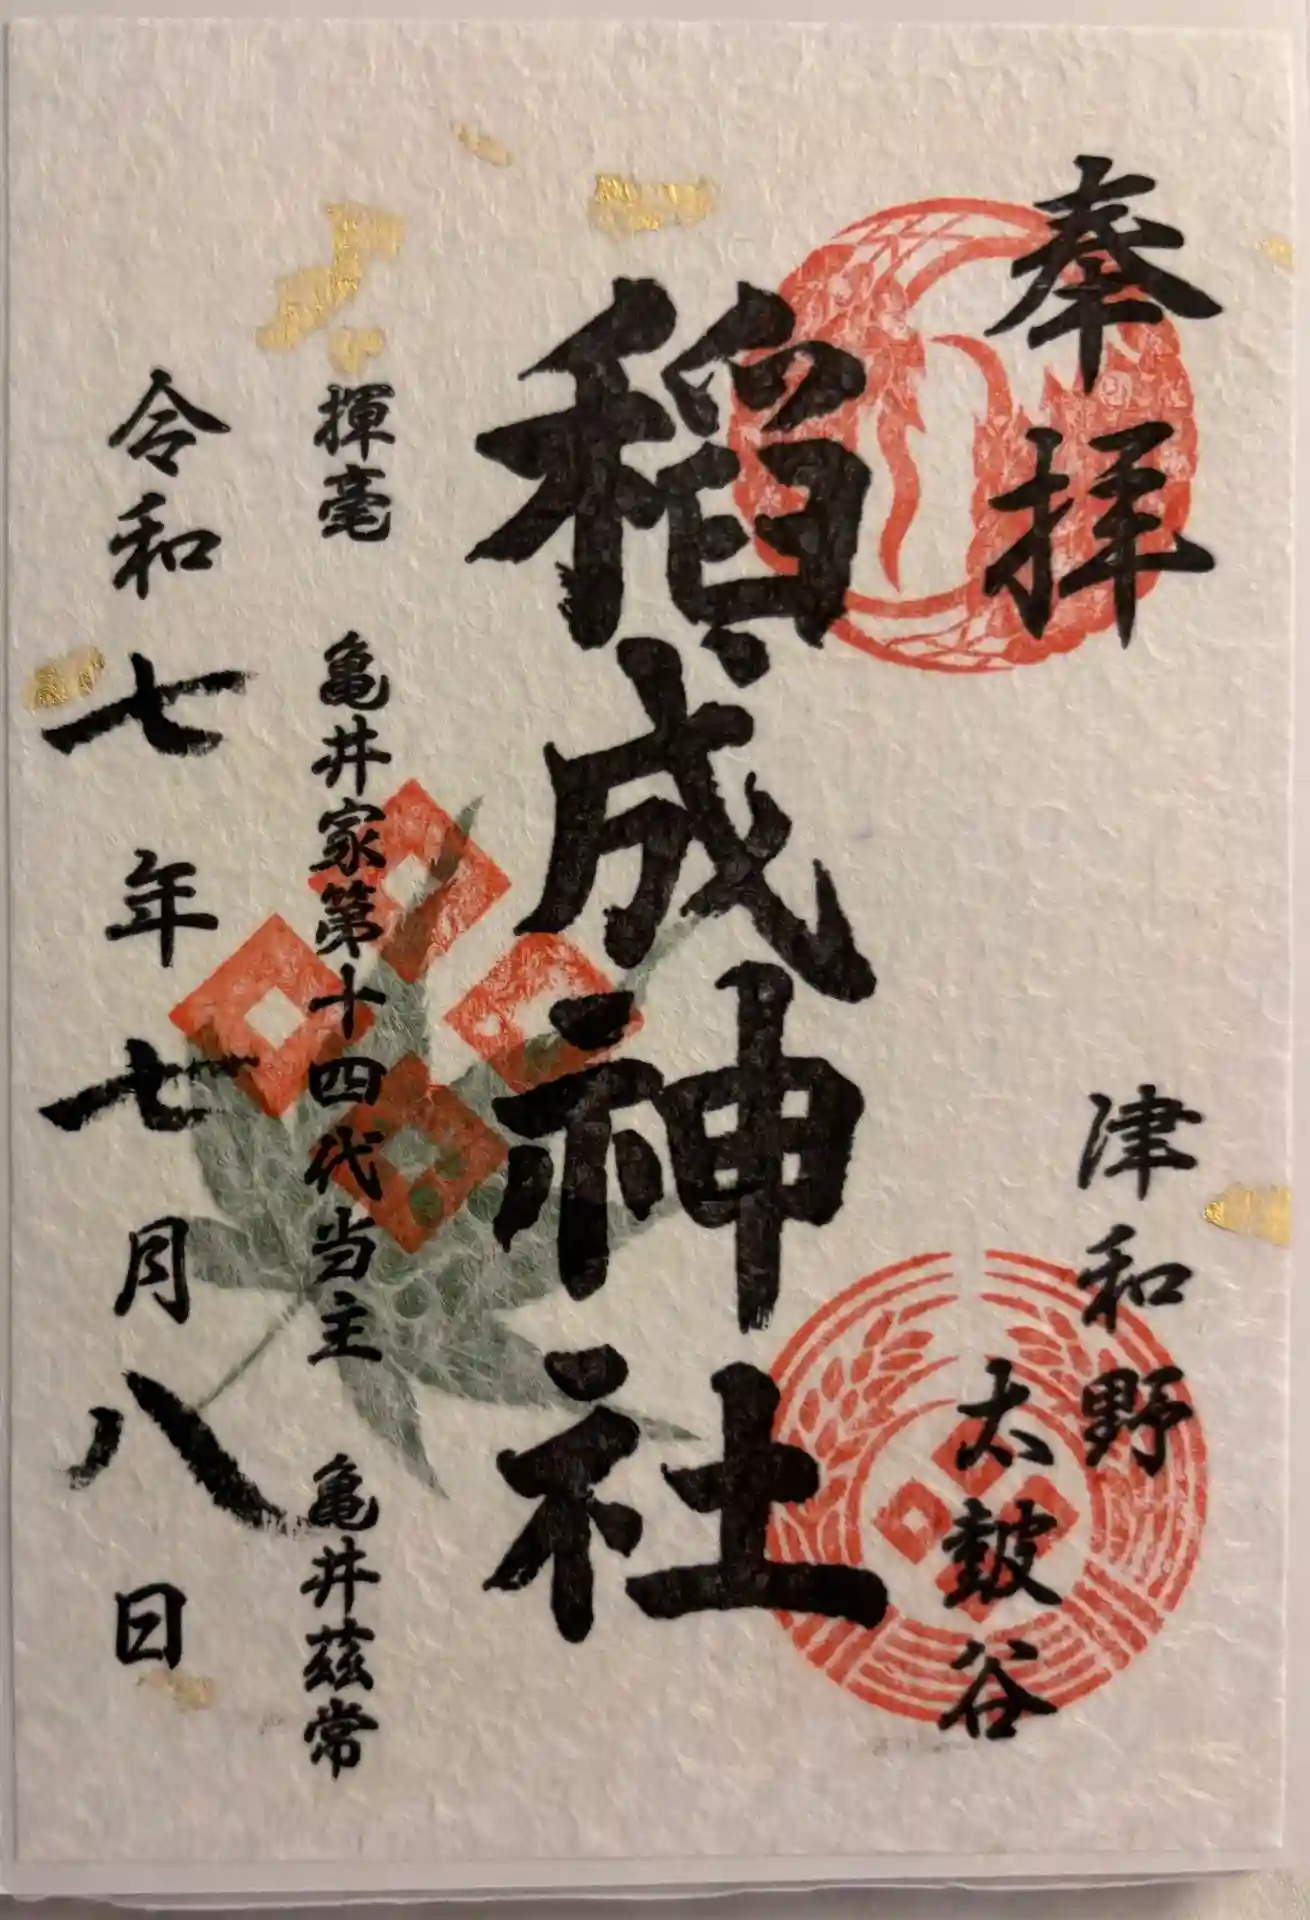 奉拝
津和野
太皷谷
稻成神社
揮毫 亀井家第十四代当主 亀井茲常
令和七年七月八日